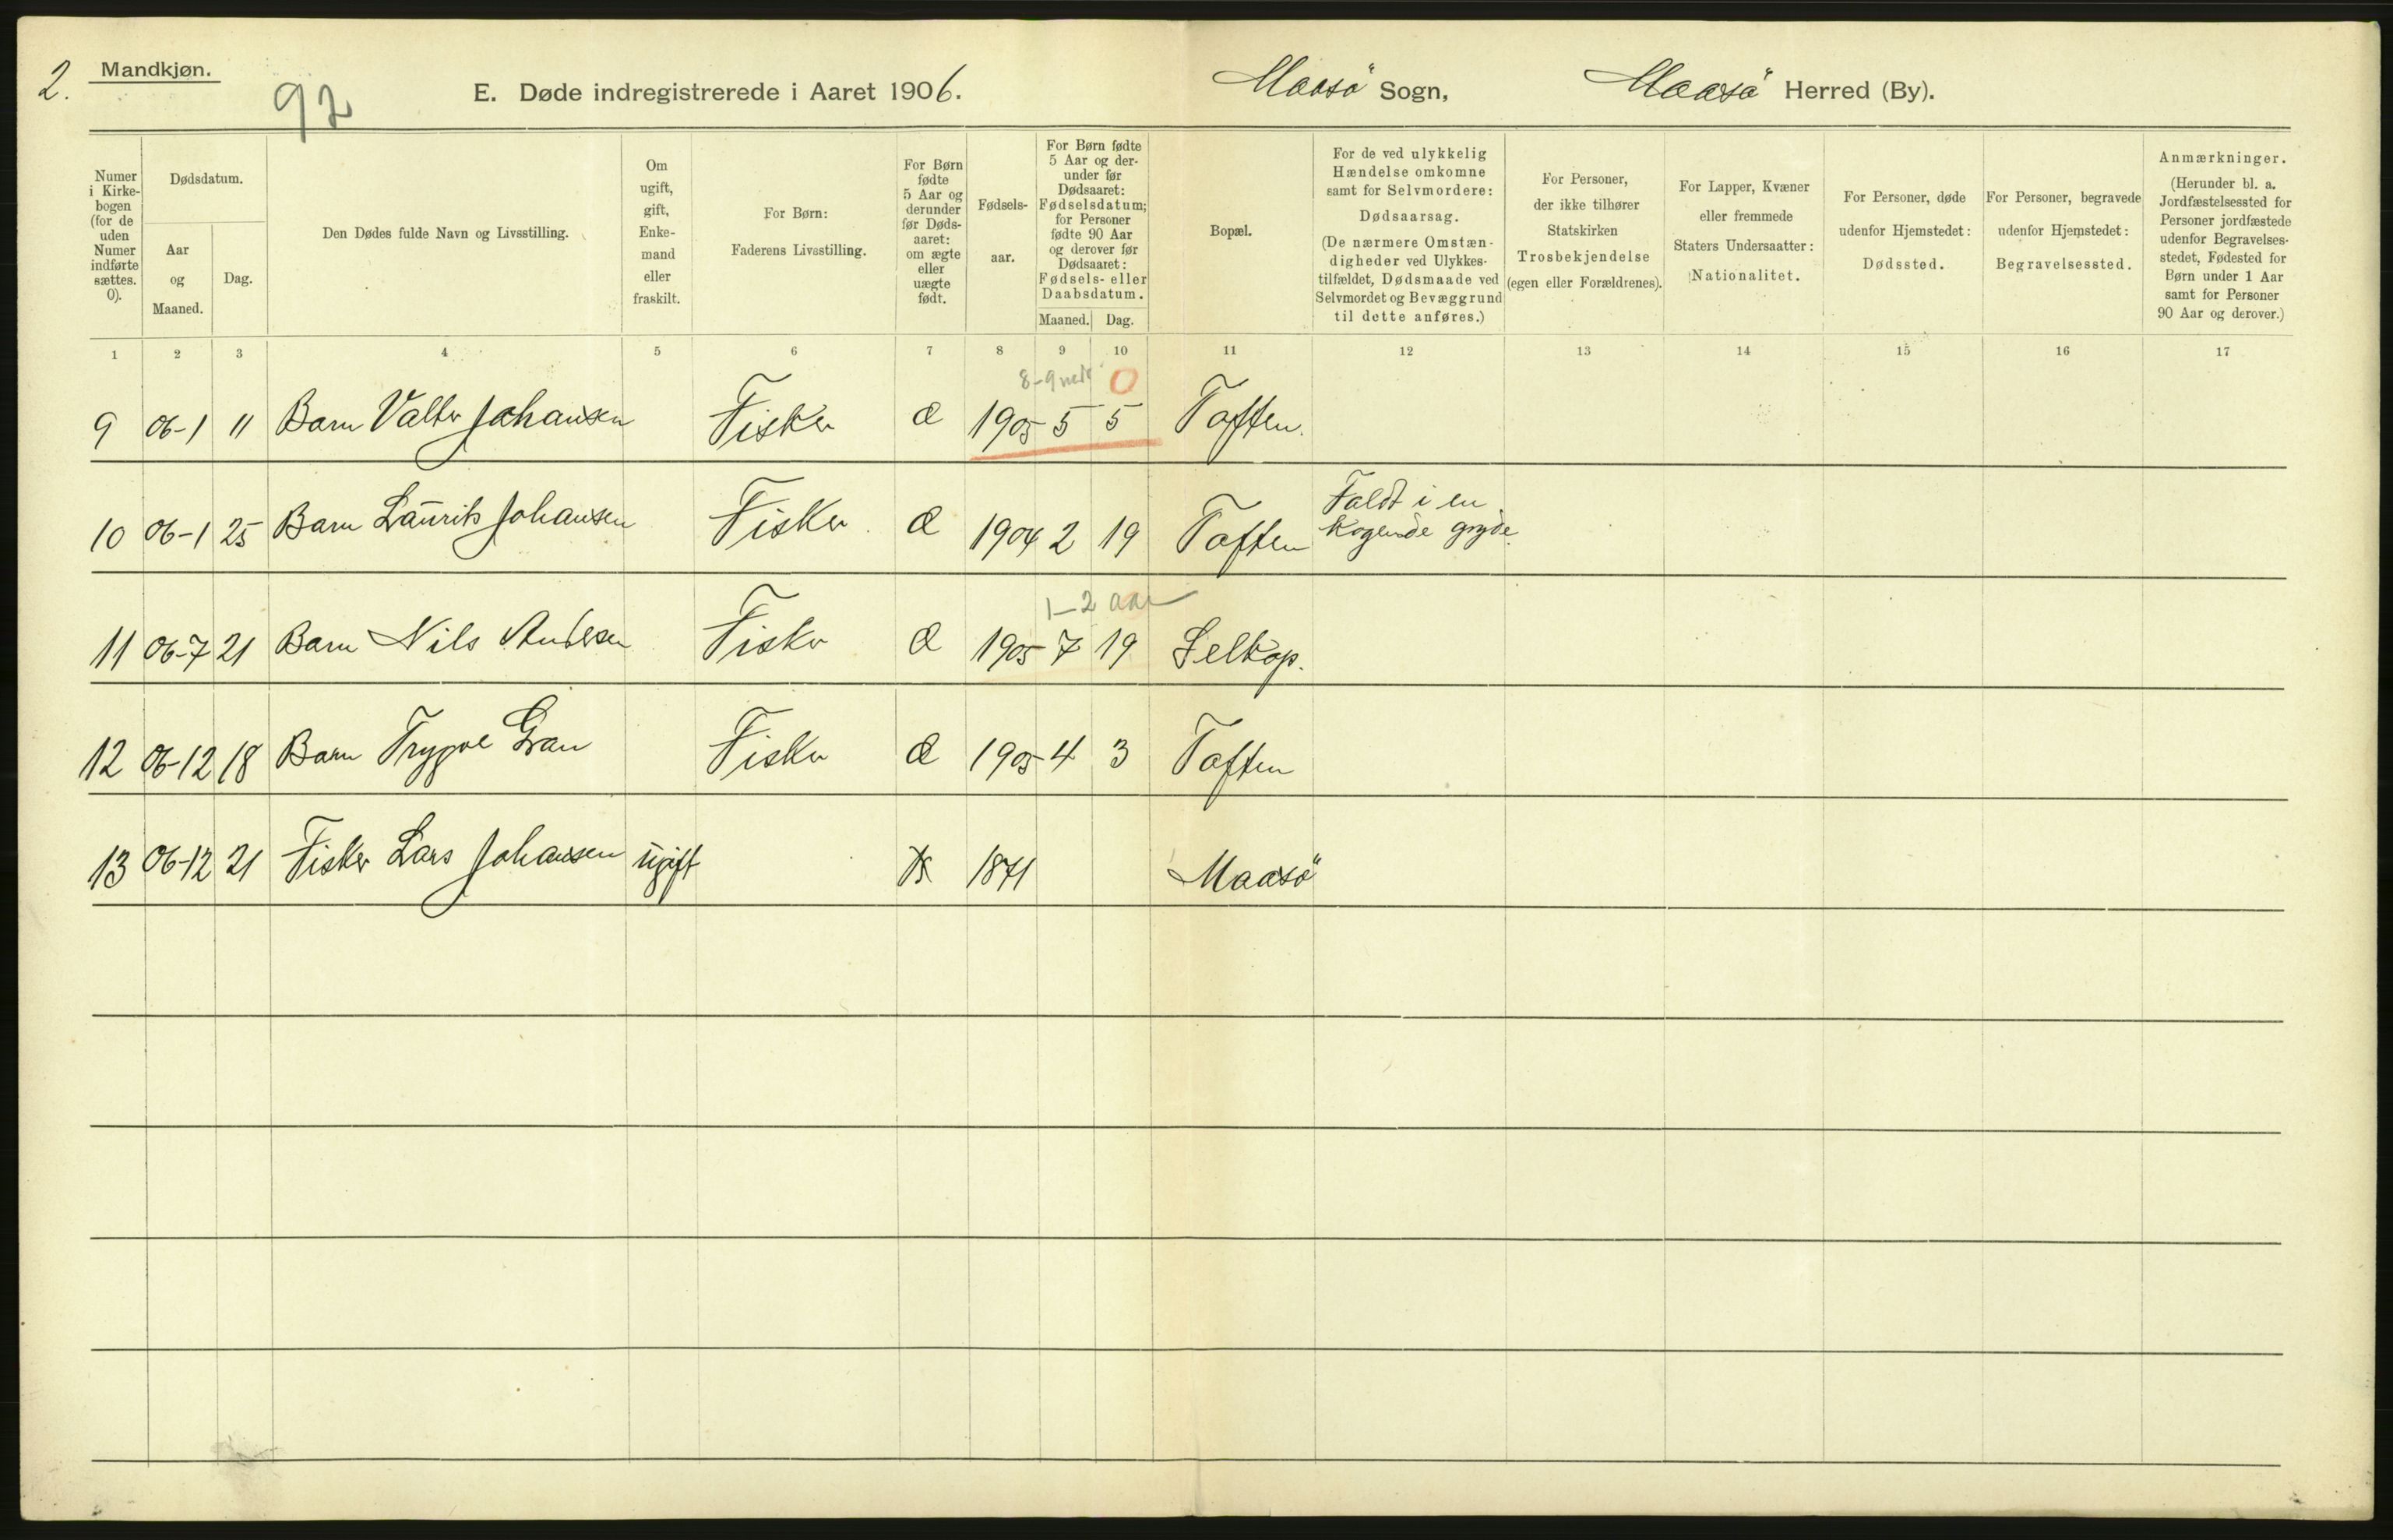 2.
Mandkjøn.
92
E. Døde indregistrerede i Aaret 1906.
Maasö Sogn,
Maasö Herred (By).
Numer
i Kirke-
bogen
(for de
uden
Numer
indførte
sættes.
0).
Dødsdatum.
Aar
og
Maaned.
Dag.
Den Dødes fulde Navn og Livsstilling.
Om
ugift,
gift,
Enke-
mand
eller
fraskilt.
For Børn:
Faderens Livsstilling.
For Børn
fødte
5 Aar og
derunder
før Døds-
aaret:
om ægte
eller
uægte
født.
Fødsels-
aar.
For Børn fødte
5 Aar og der-
under før
Dødsaaret:
Fødselsdatum;
for Personer
fødte 90 Aar
og derover før
Dødsaaret:
Fødsels- eller
Daabsdatum.
Maaned.
Dag.
Bopæl.
For de ved ulykkelig
Hændelse omkomne
samt for Selvmordere:
Dødsaarsag.
(De nærmere Omstæn-
digheder ved Ulykkes-
tilfældet, Dødsmaade ved
Selvmordet og Bevæggrund
til dette anføres.)
For Personer,
der ikke tilhører
Statskirken
Trosbekjendelse
(egen eller Forældrenes).
For Lapper, Kvæner
eller fremmede
Staters Undersaatter:
Nationalitet.
For Personer, døde
udenfor Hjemstedet:
Dødssted.
For Personer, begravede
udenfor Hjemstedet:
Begravelsessted.
Anmærkninger.
(Herunder bl. a.
Jordfæstelsessted for
Personer jordfæstede
udenfor Begravelses-
stedet, Fødested for
Børn under 1 Aar
samt for Personer
90 Aar og derover.)
1 2 3 4 5 6 7 8 9 10 11 12 13 14 15 16 17
8-9 0
9 06-1 11 Barn Valter Johansen Fisker Æ 1905 5 5 Toften.
10 06-1 25 Barn Laurits Johansen Fisker Æ 1904 2 19 Toften Faldt i en
kogende gryde.
1-2 aar
11 06-7 21 Barn Nils Andersen Fisker Æ 1905 7 19 Selkop.
12 06-12 18 Barn Trygve Gran Fisker Æ 1905 4 3 Toften
13 06-12 21 Fisker Lars Johansen ugift 1871 Maasö